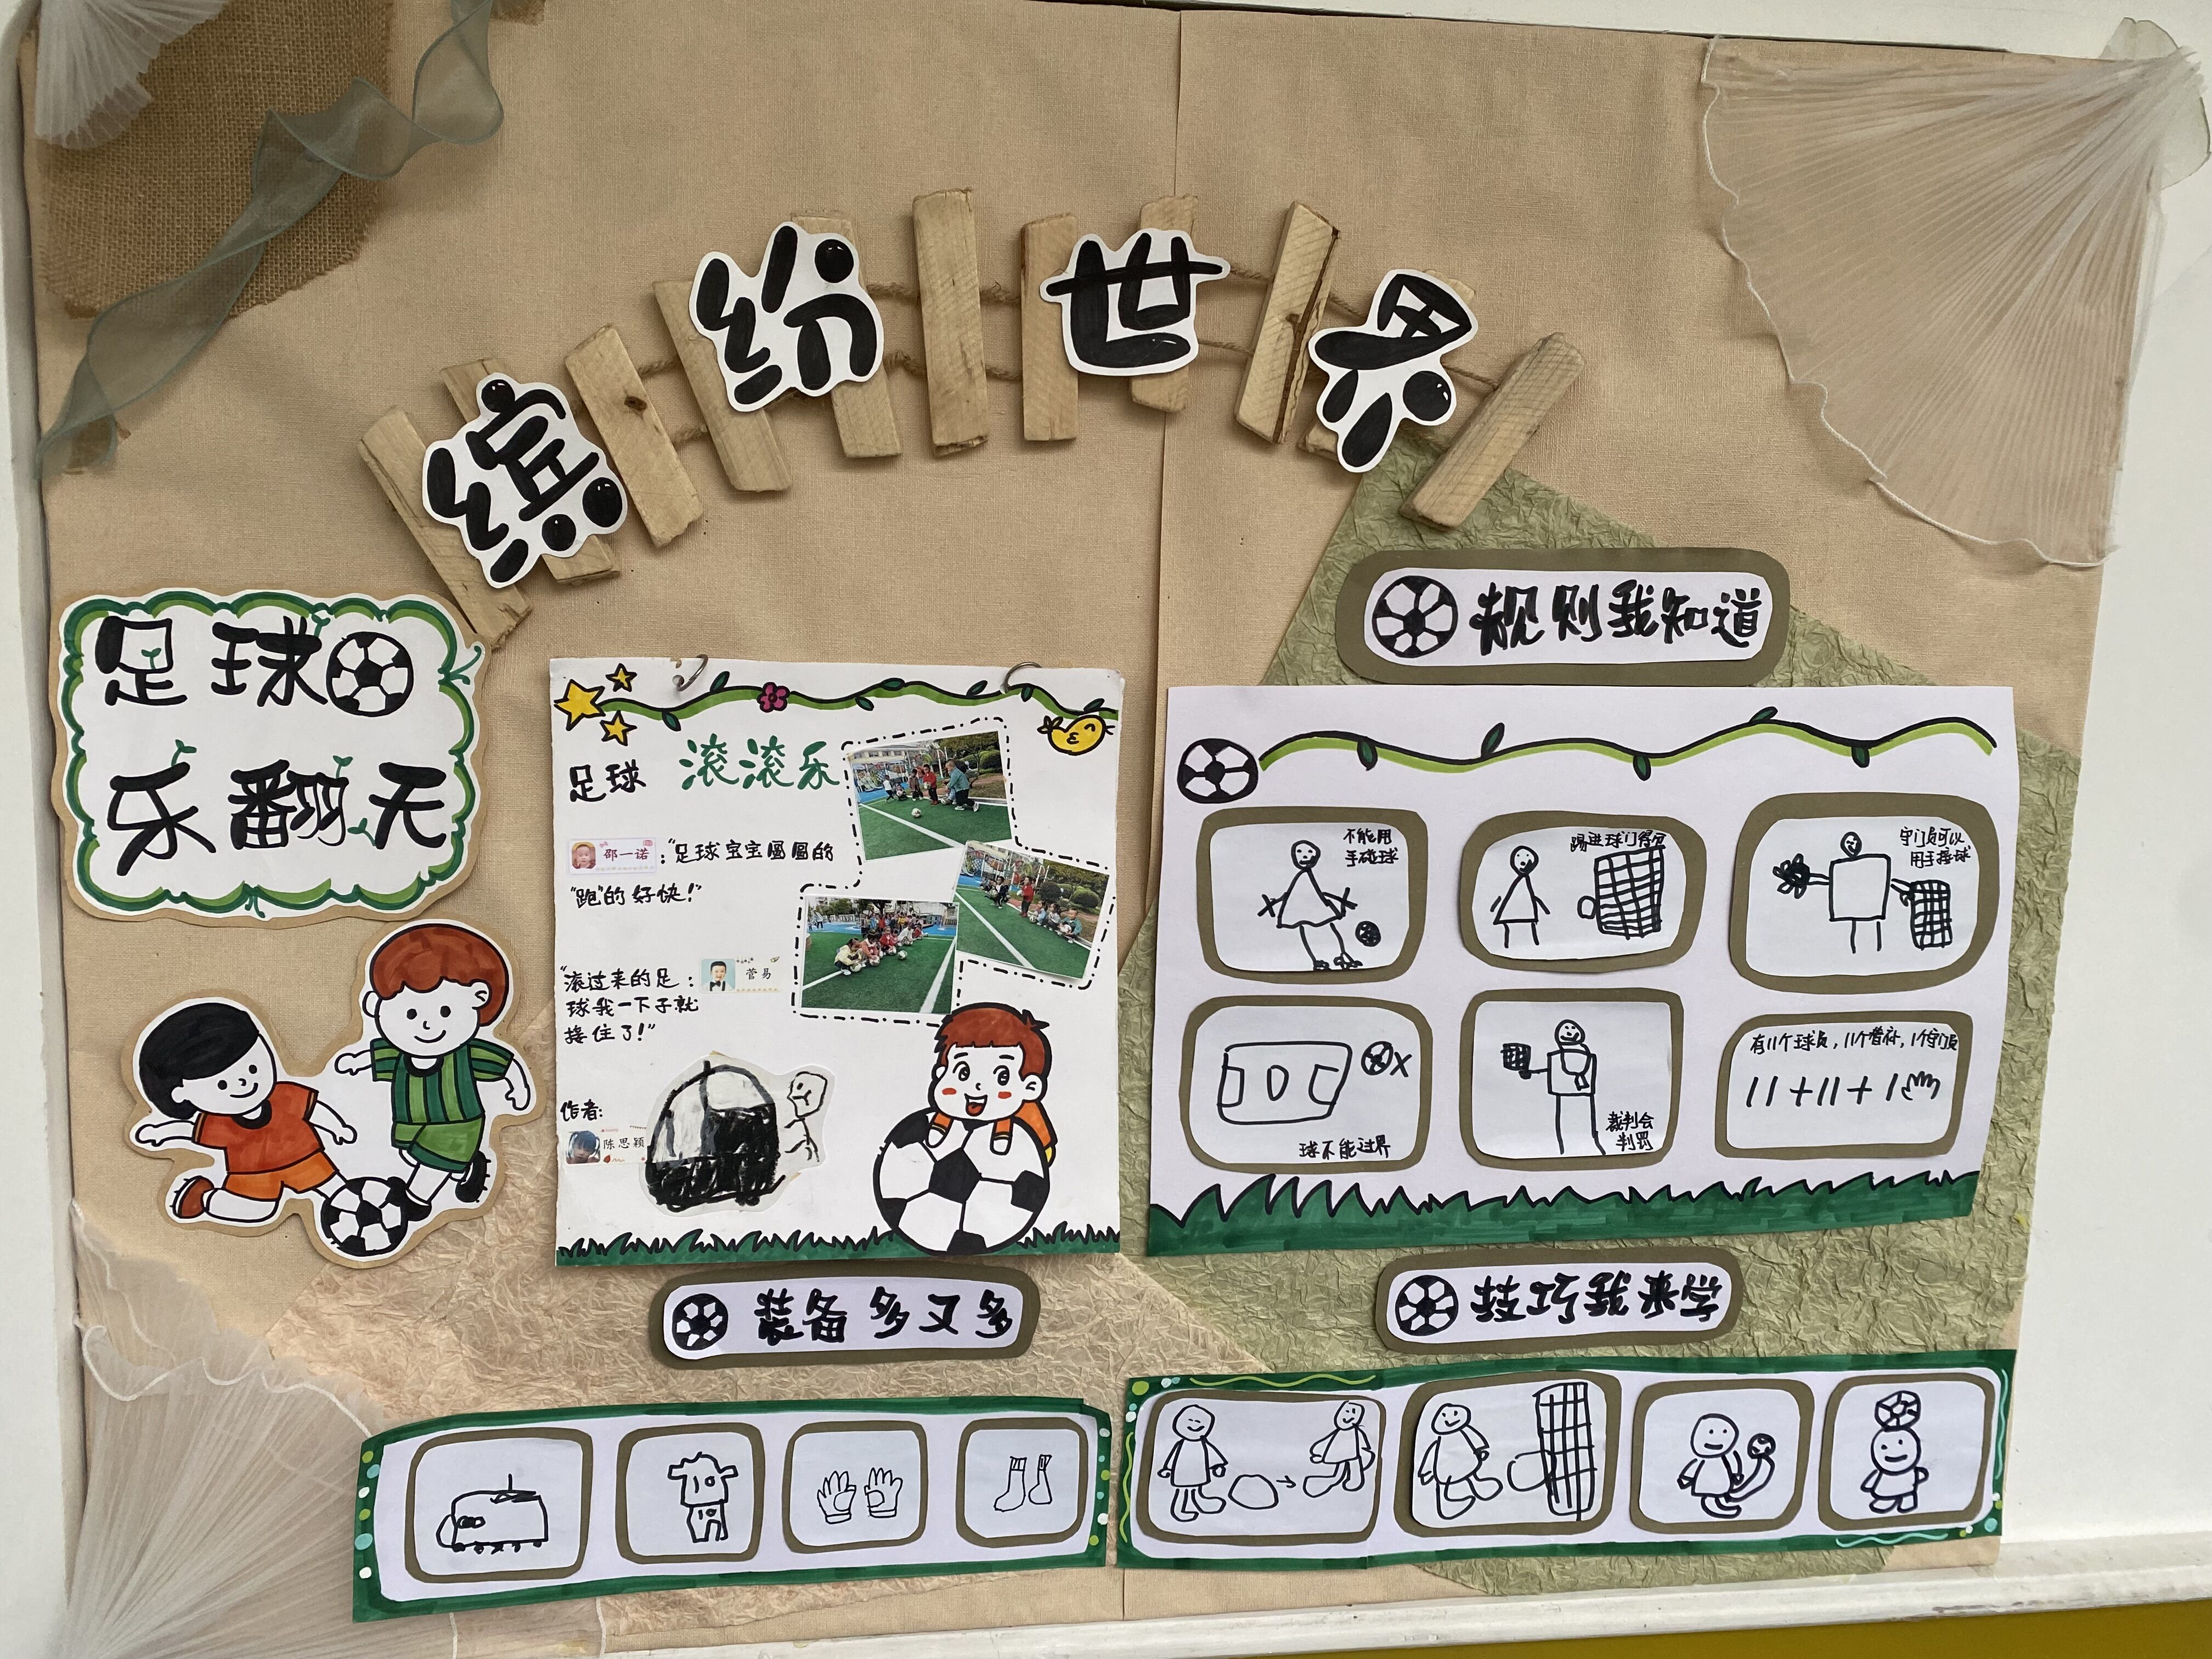 缤纷世界
足球
乐翻天
足球 滚滚乐
邵一诺:“足球宝宝圆圆的
“跑”的好快!”
“滚过来的足:菅易
球我一下子就
接住了!”
作者:
陈思颖
规则我知道
不能用
手碰球
踢进球门得分
守门员可以
用手接球
球不能过界
裁判会
判罚
有11个球员,11个替补,1个守门员
11+11+1
装备多又多
技巧我来学